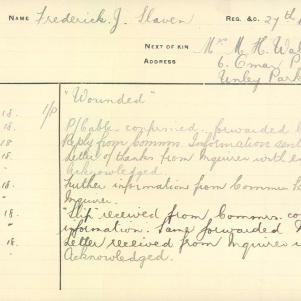 NAME Frederick. J. Slaven REG. &C. 27th
NEXT OF KIN Mrs M. H. Wal
ADDRESS 6. Emar P
Unley Park
"Wounded"
18. 1/P P/Cable confirmed. forwarded
18. Reply from Commrs. Information sent
18 Letter of thanks from Inquirer with
" Acknowledged.
18. Further information from Commrs
" Inquirer.
18. "Slip" received from Commrs. co
" information. Same forwarded
18. Letter received from Inquirer
" Acknowledged.